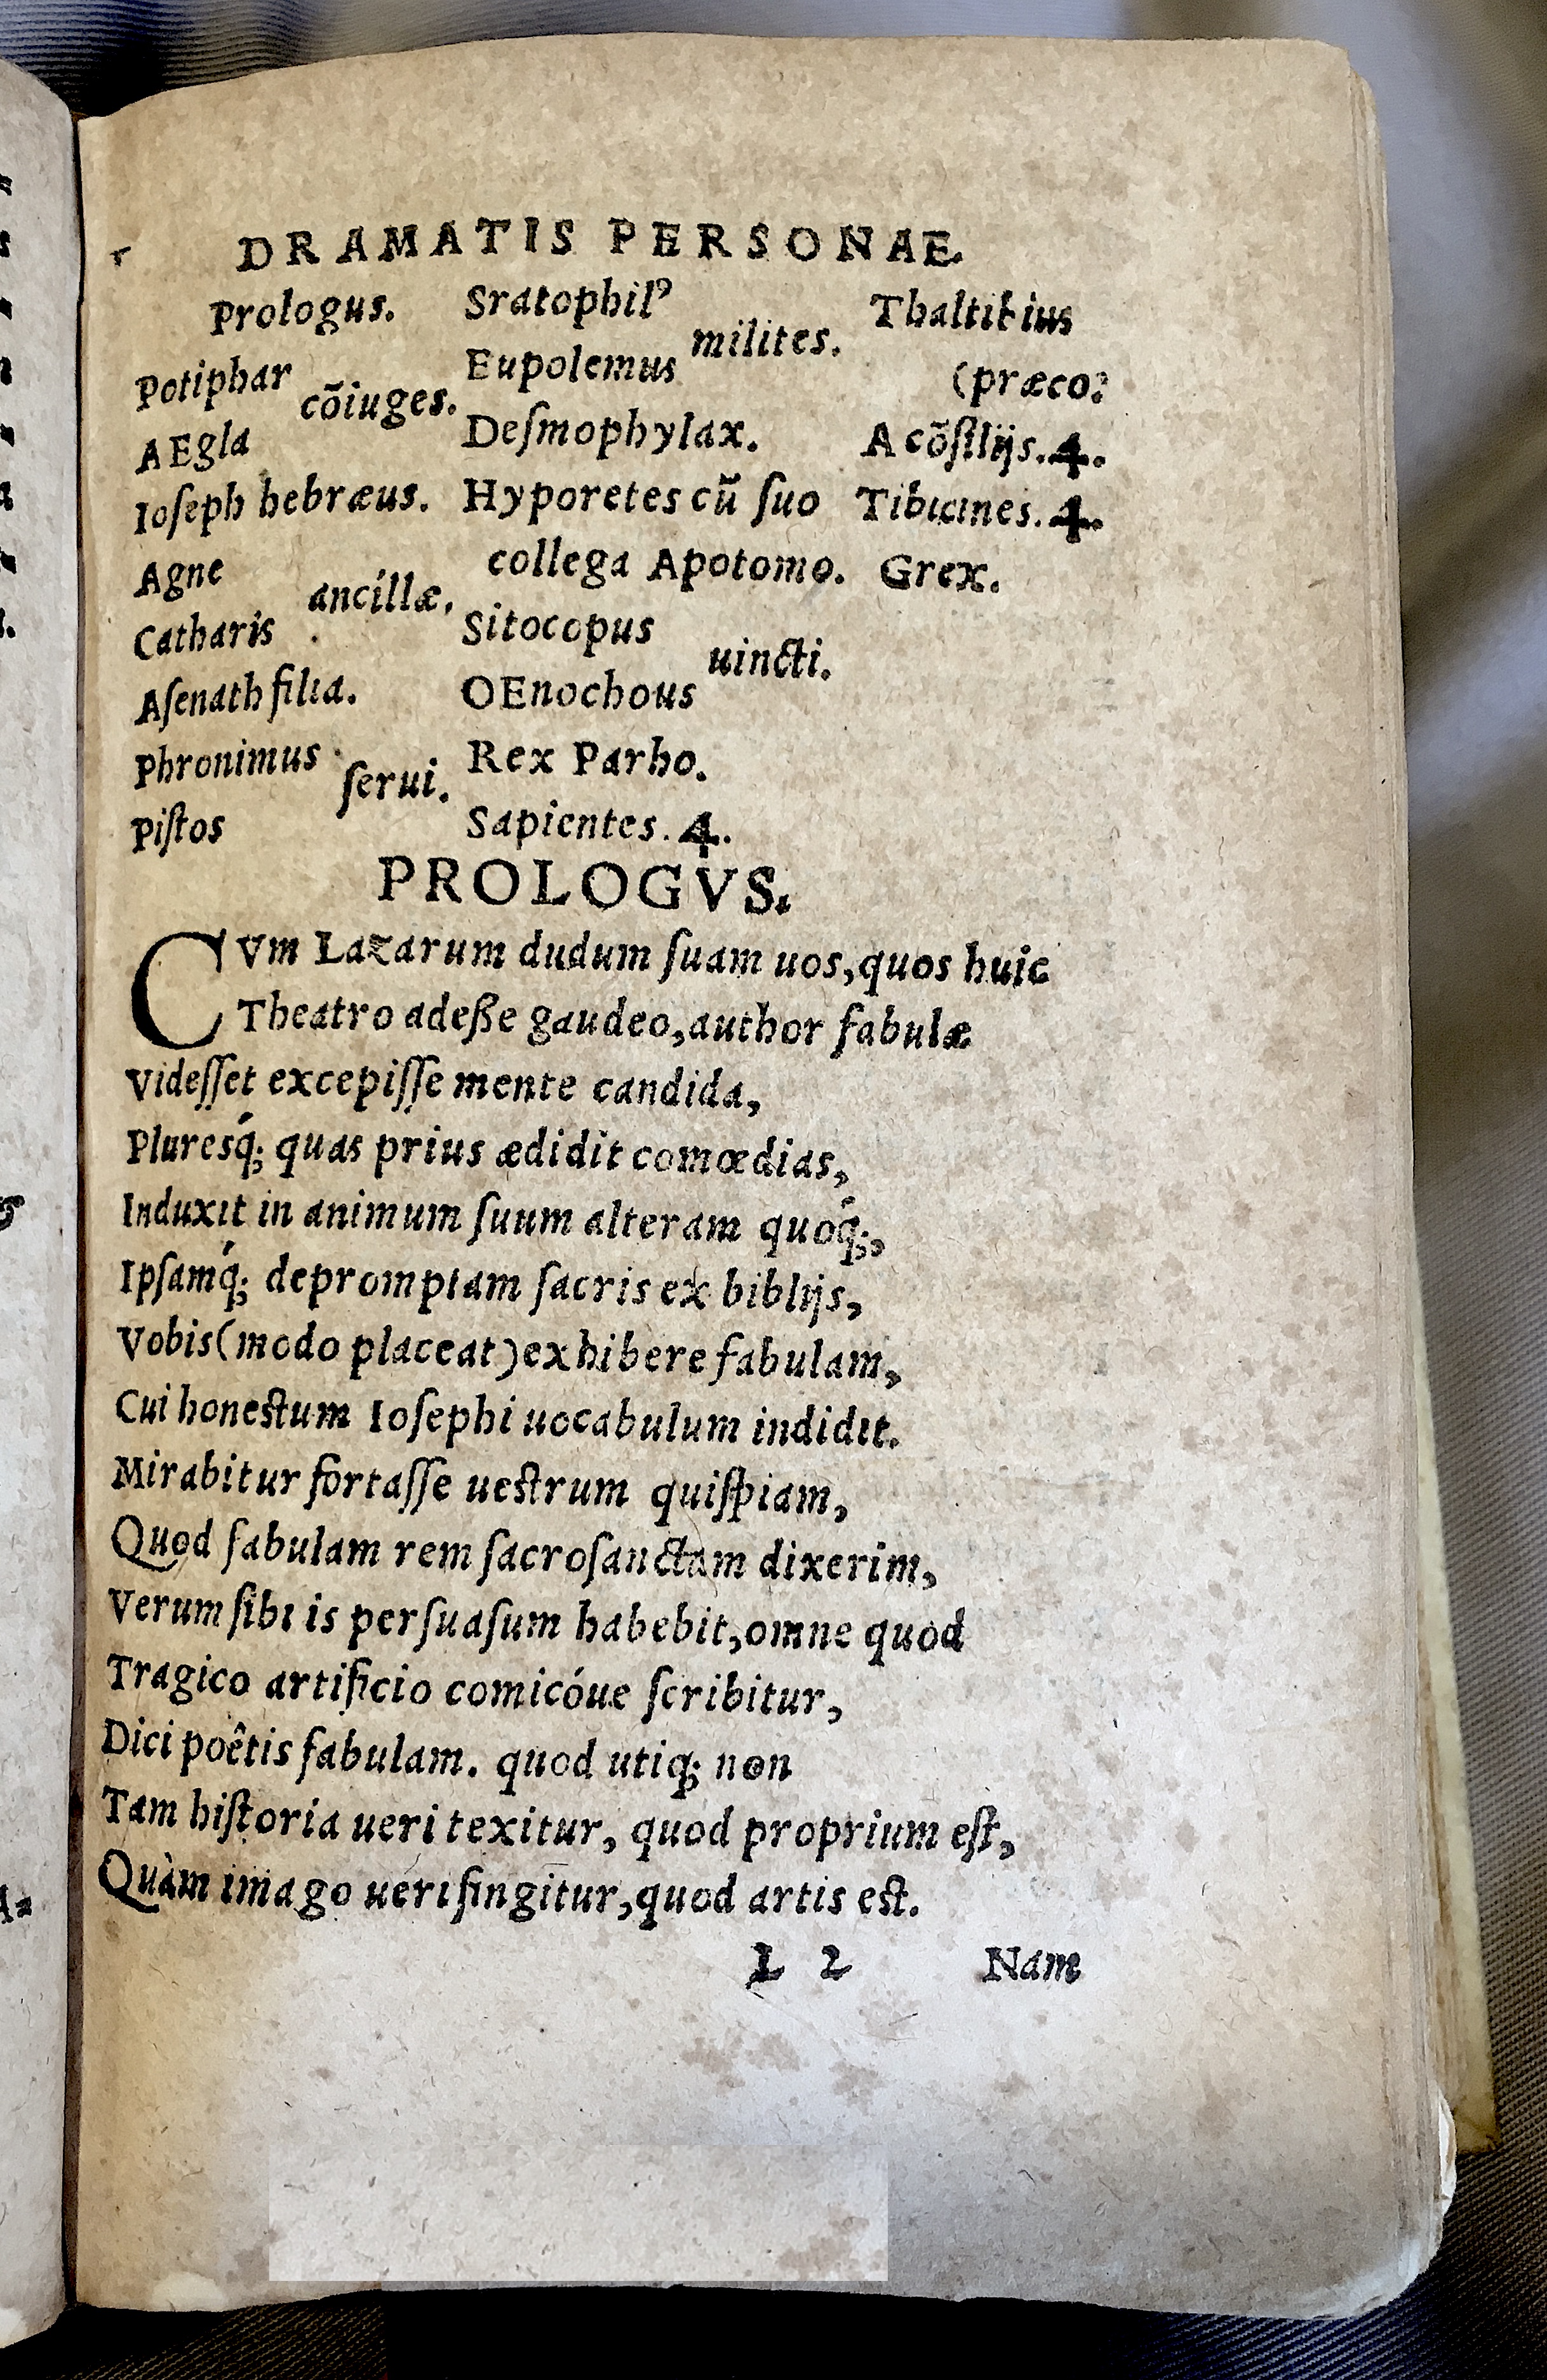 DRAMATIS PERSONAE.
Prologus.
Potiphar
AEgla
cõiuges.
Ioseph hebræus.
Agne
Catharis
ancillæ.
Asenath filia.
Phronimus
Pistos
serui.
Sratophilꝰ
Eupolemus
milites.
Desmophylax.
Hyporetes cũ suo
collega Apotomo.
Sitocopus
OEnochous
uincti.
Rex Parho.
Sapientes. 4.
Thaltibius
(præco:
A cõsilijs. 4.
Tibicines. 4.
Grex.
PROLOGVS.
CVm Lazarum dudum suam uos, quos huic
Theatro adeße gaudeo, author fabulæ
Videsset excepisse mente candida,
Pluresq́; quas prius ædidit comœdias,
Induxit in animum suum alteram quoq́;,
Ipsamq́; depromptam sacris ex biblijs,
Vobis (modo placeat) exhibere fabulam,
Cui honestum Iosephi uocabulum indidit.
Mirabitur fortasse uestrum quispiam,
Quod fabulam rem sacrosanctam dixerim,
Verum sibi is persuasum habebit, omne quod
Tragico artificio comicóue scribitur,
Dici poêtis fabulam. quod utiq; non
Tam historia ueri texitur, quod proprium est,
Quàm imago ueri fingitur, quod artis est.
L 2 Nam